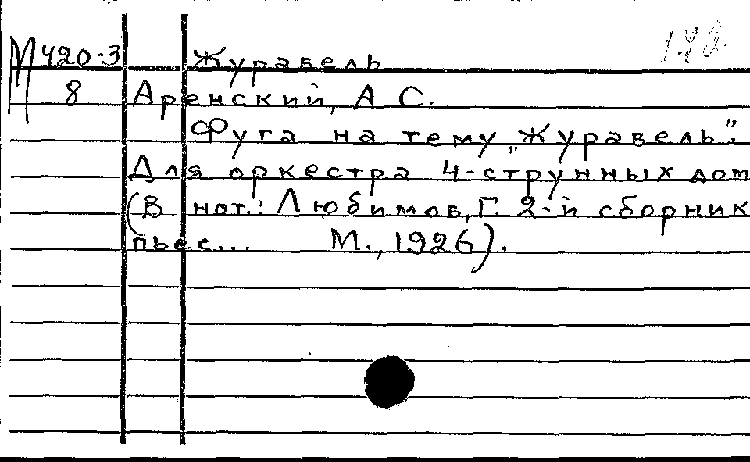 М 420-3 Журавель
8 Аренский, А С.
Фуга на тему „Журавель”.
Для оркестра 4-струнных дом
(В нот.: Любимов, Г. 2-й сборник
пьес... М., 1926).